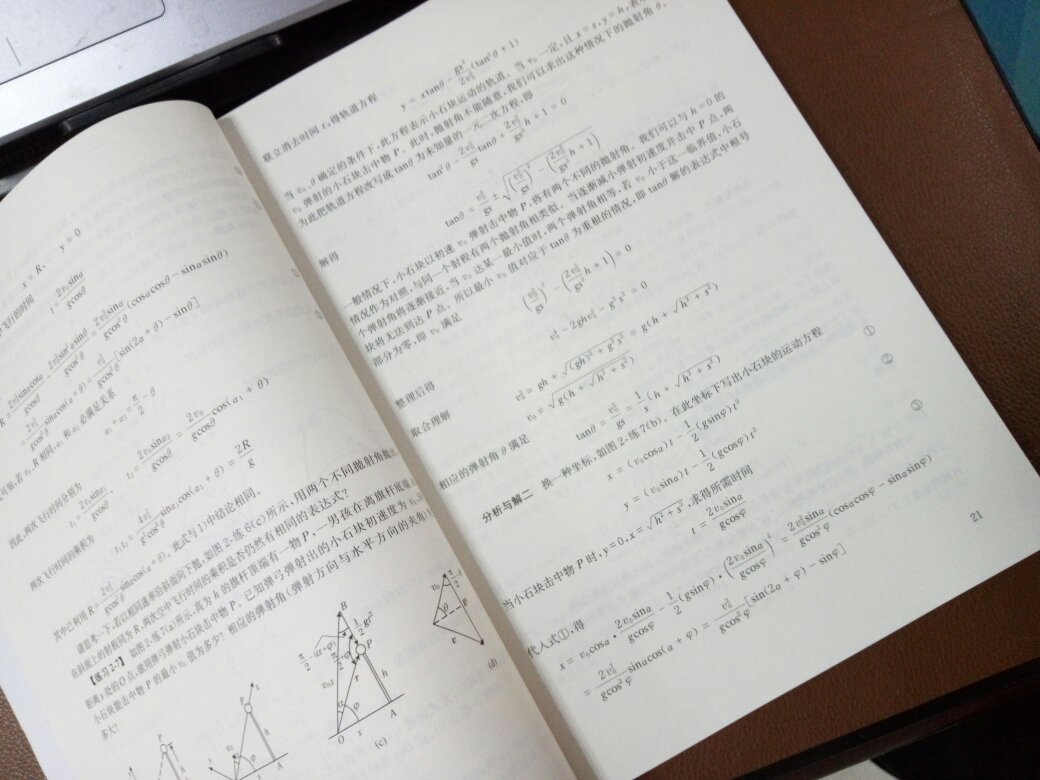 x = R, y = 0
t = \frac{2v_0\sin\alpha}{g\cos\theta}
a_1 + a_2 = \frac{\pi}{2} - \theta
因此,两次飞行时间分别为
t_1 = \frac{2v_0\sin\alpha_1}{g\cos\theta}, t_2 = \frac{2v_0\sin\alpha_2}{g\cos\theta} = \frac{2v_0}{g\cos\theta}\cos(\alpha_1 + \theta)
两次飞行时间的乘积为
t_1t_2 = \frac{4v_0^2}{g^2\cos^2\theta}\sin\alpha_1\cos(\alpha_1 + \theta) = \frac{2R}{g}
其中已利用 R = \frac{2v_0^2}{g\cos^2\theta}\sin\alpha_1\cos(\alpha_1 + \theta),此式与1)中结论相同。
请思考一下,若以相同速率沿斜面向下抛,如图2-练6(c)所示,用两个不同抛射角抛出
在斜面上的射程同为 R,两次空中飞行时间的乘积是否仍然有相同的表达式?
【练习2-7】 如图2-练7(a)所示,高为 h 的旗杆顶端有一物 P,一男孩在离旗杆底端
距离 s 处的 O 点,欲用弹弓弹射小石块击中物 P。已知弹弓弹射出的小石块初速度为 v_0,
小石块能击中物 P 的最小 v_0 值为多少?相应的弹射角(弹射方向与水平方向的夹角)为
多大?
P
v_0
h
A
x
P
φ
B
\frac{1}{2}gt^2
\frac{\pi}{2}-(α+φ)
v_0t
r
P
h
α
φ
O
s
A
(c)
v_0
θ
g
v
(d)
联立消去时间 t,得轨道方程
y = x\tan\theta - \frac{gx^2}{2v_0^2}(\tan^2\theta + 1)
当 v_0、θ 确定的条件下,此方程表示小石块运动的轨道。当 v_0 一定,且 x = s, y = h,表示
v_0 弹射的小石块击中物 P。此时,抛射角不能随意,我们可以求出这种情况下的抛射角 θ。
为此把轨道方程改写成 tanθ 为未知量的一元二次方程,即
\tan^2\theta - \frac{2v_0^2}{gs}\tan\theta + \frac{2v_0^2}{gs^2}h + 1 = 0
解得
\tan\theta = \frac{v_0^2}{gs} ± \sqrt{(\frac{v_0^2}{gs})^2 - (\frac{2v_0^2}{gs^2}h + 1)}
一般情况下,小石块以初速 v_0 弹射击中物 P,将有两个不同的抛射角。我们可以与 h = 0 的
情况作为对照,与同一个射程有两个抛射角相类似。当逐渐减小弹射初速度并击中 P 点,两
个弹射角将逐渐接近,当 v_0 达某一最小值时,两个弹射角相等,若 v_0 小于这一临界值,小石
块将无法到达 P 点。所以最小 v_0 值对应于 tanθ 为重根的情况,即 tanθ 解的表达式中根号
部分为零,即 v_0 满足
(\frac{v_0^2}{gs})^2 - (\frac{2v_0^2}{gs^2}h + 1) = 0
整理后得
v_0^4 - 2ghv_0^2 - g^2s^2 = 0
取合理解
v_0^2 = gh + \sqrt{(gh)^2 + g^2s^2} = g(h + \sqrt{h^2 + s^2})
v_0 = \sqrt{g(h + \sqrt{h^2 + s^2})}
相应的弹射角 θ 满足
\tan\theta = \frac{v_0^2}{gs} = \frac{1}{s}(h + \sqrt{h^2 + s^2})
分析与解二 换一种坐标,如图2-练7(b)。在此坐标下写出小石块的运动方程
x = (v_0\cos\alpha)t - \frac{1}{2}(g\sinφ)t^2 ①
y = (v_0\sin\alpha)t - \frac{1}{2}(g\cosφ)t^2 ②
当小石块击中物 P 时,y = 0,x = \sqrt{h^2 + s^2},求得所需时间
t = \frac{2v_0\sin\alpha}{g\cosφ} ③
代入式①,得
x = v_0\cos\alpha · \frac{2v_0\sin\alpha}{g\cosφ} - \frac{1}{2}(g\sinφ) · (\frac{2v_0\sin\alpha}{g\cosφ})^2 = \frac{2v_0^2\sin\alpha}{g\cos^2φ}(\cos\alpha\cosφ - \sin\alpha\sinφ)
= \frac{2v_0^2}{g\cos^2φ}\sin\alpha\cos(\alpha + φ) = \frac{v_0^2}{g\cos^2φ}[\sin(2\alpha + φ) - \sinφ]
21